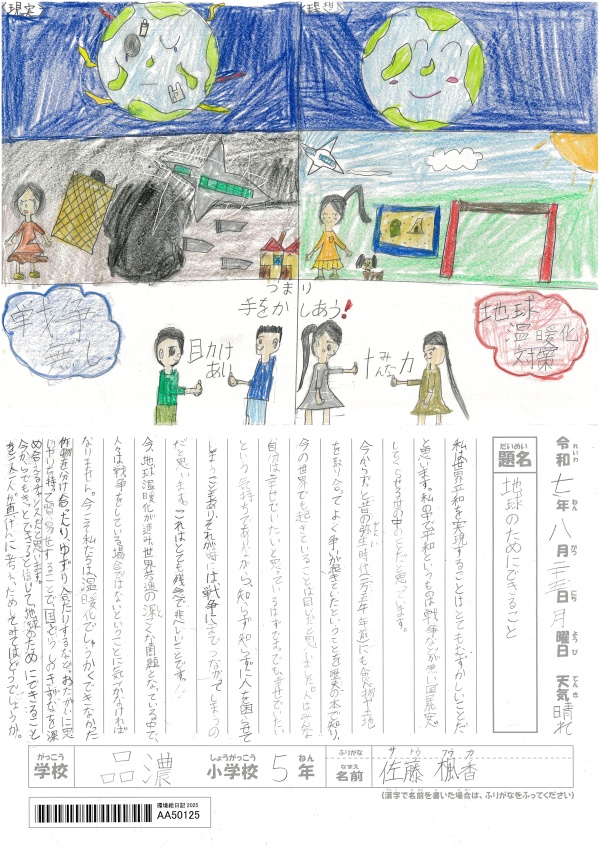 現実
理想
つまり
手をかしあう!
戦争
無し
助け
あい
みんな
+
力
地球
温暖化
対策
令和七年八月二十五日月曜日 天気 晴れ
れいわ ねん がつ にち ようび てんき
だいめい
題名
地球のためにできること
私は世界平和を実現することはとてもむずかしいことだ
と思います。私の中で平和というものは戦争などが無い国民が安心
してくらせる世の中のことだと思っています。
を取り合ってよく争が起きていたということを歴史の本で知り、
今の世界でも起きていることは同じだと思いました。人はみな
自分は幸せでいたいと思っているはずです。でも幸せでいたい
という気持ちでありながら、知らず知らずに人を困らせて
しまうこともあり、それが時には戦争にまでつながってしまうの
だと思います。これはとても残念で悲しいことです。
今、地球温暖化が進み、世界共通の深こくな問題となっている中で、
人々は戦争をしている場合ではないということに気づかなければ
なりません。今こそ私たちは温暖化でしゅうかくできなかった
作物を分け合ったり、ゆずり合ったりするなど、おたがいに思
いやりを持って
今からでもきっとできると信じて、地球のためにできること
を一人一人が真けんに考え、ためしてみてはどうでしょうか。
がっこう
学校
品濃
しょうがっこう
小学校
5
ねん
年
ふりがな
サトウ フウカ
なまえ
名前
佐藤 楓香
(漢字で名前を書いた場合は、ふりがなをふってください)
環境絵日記 2025
AA50125